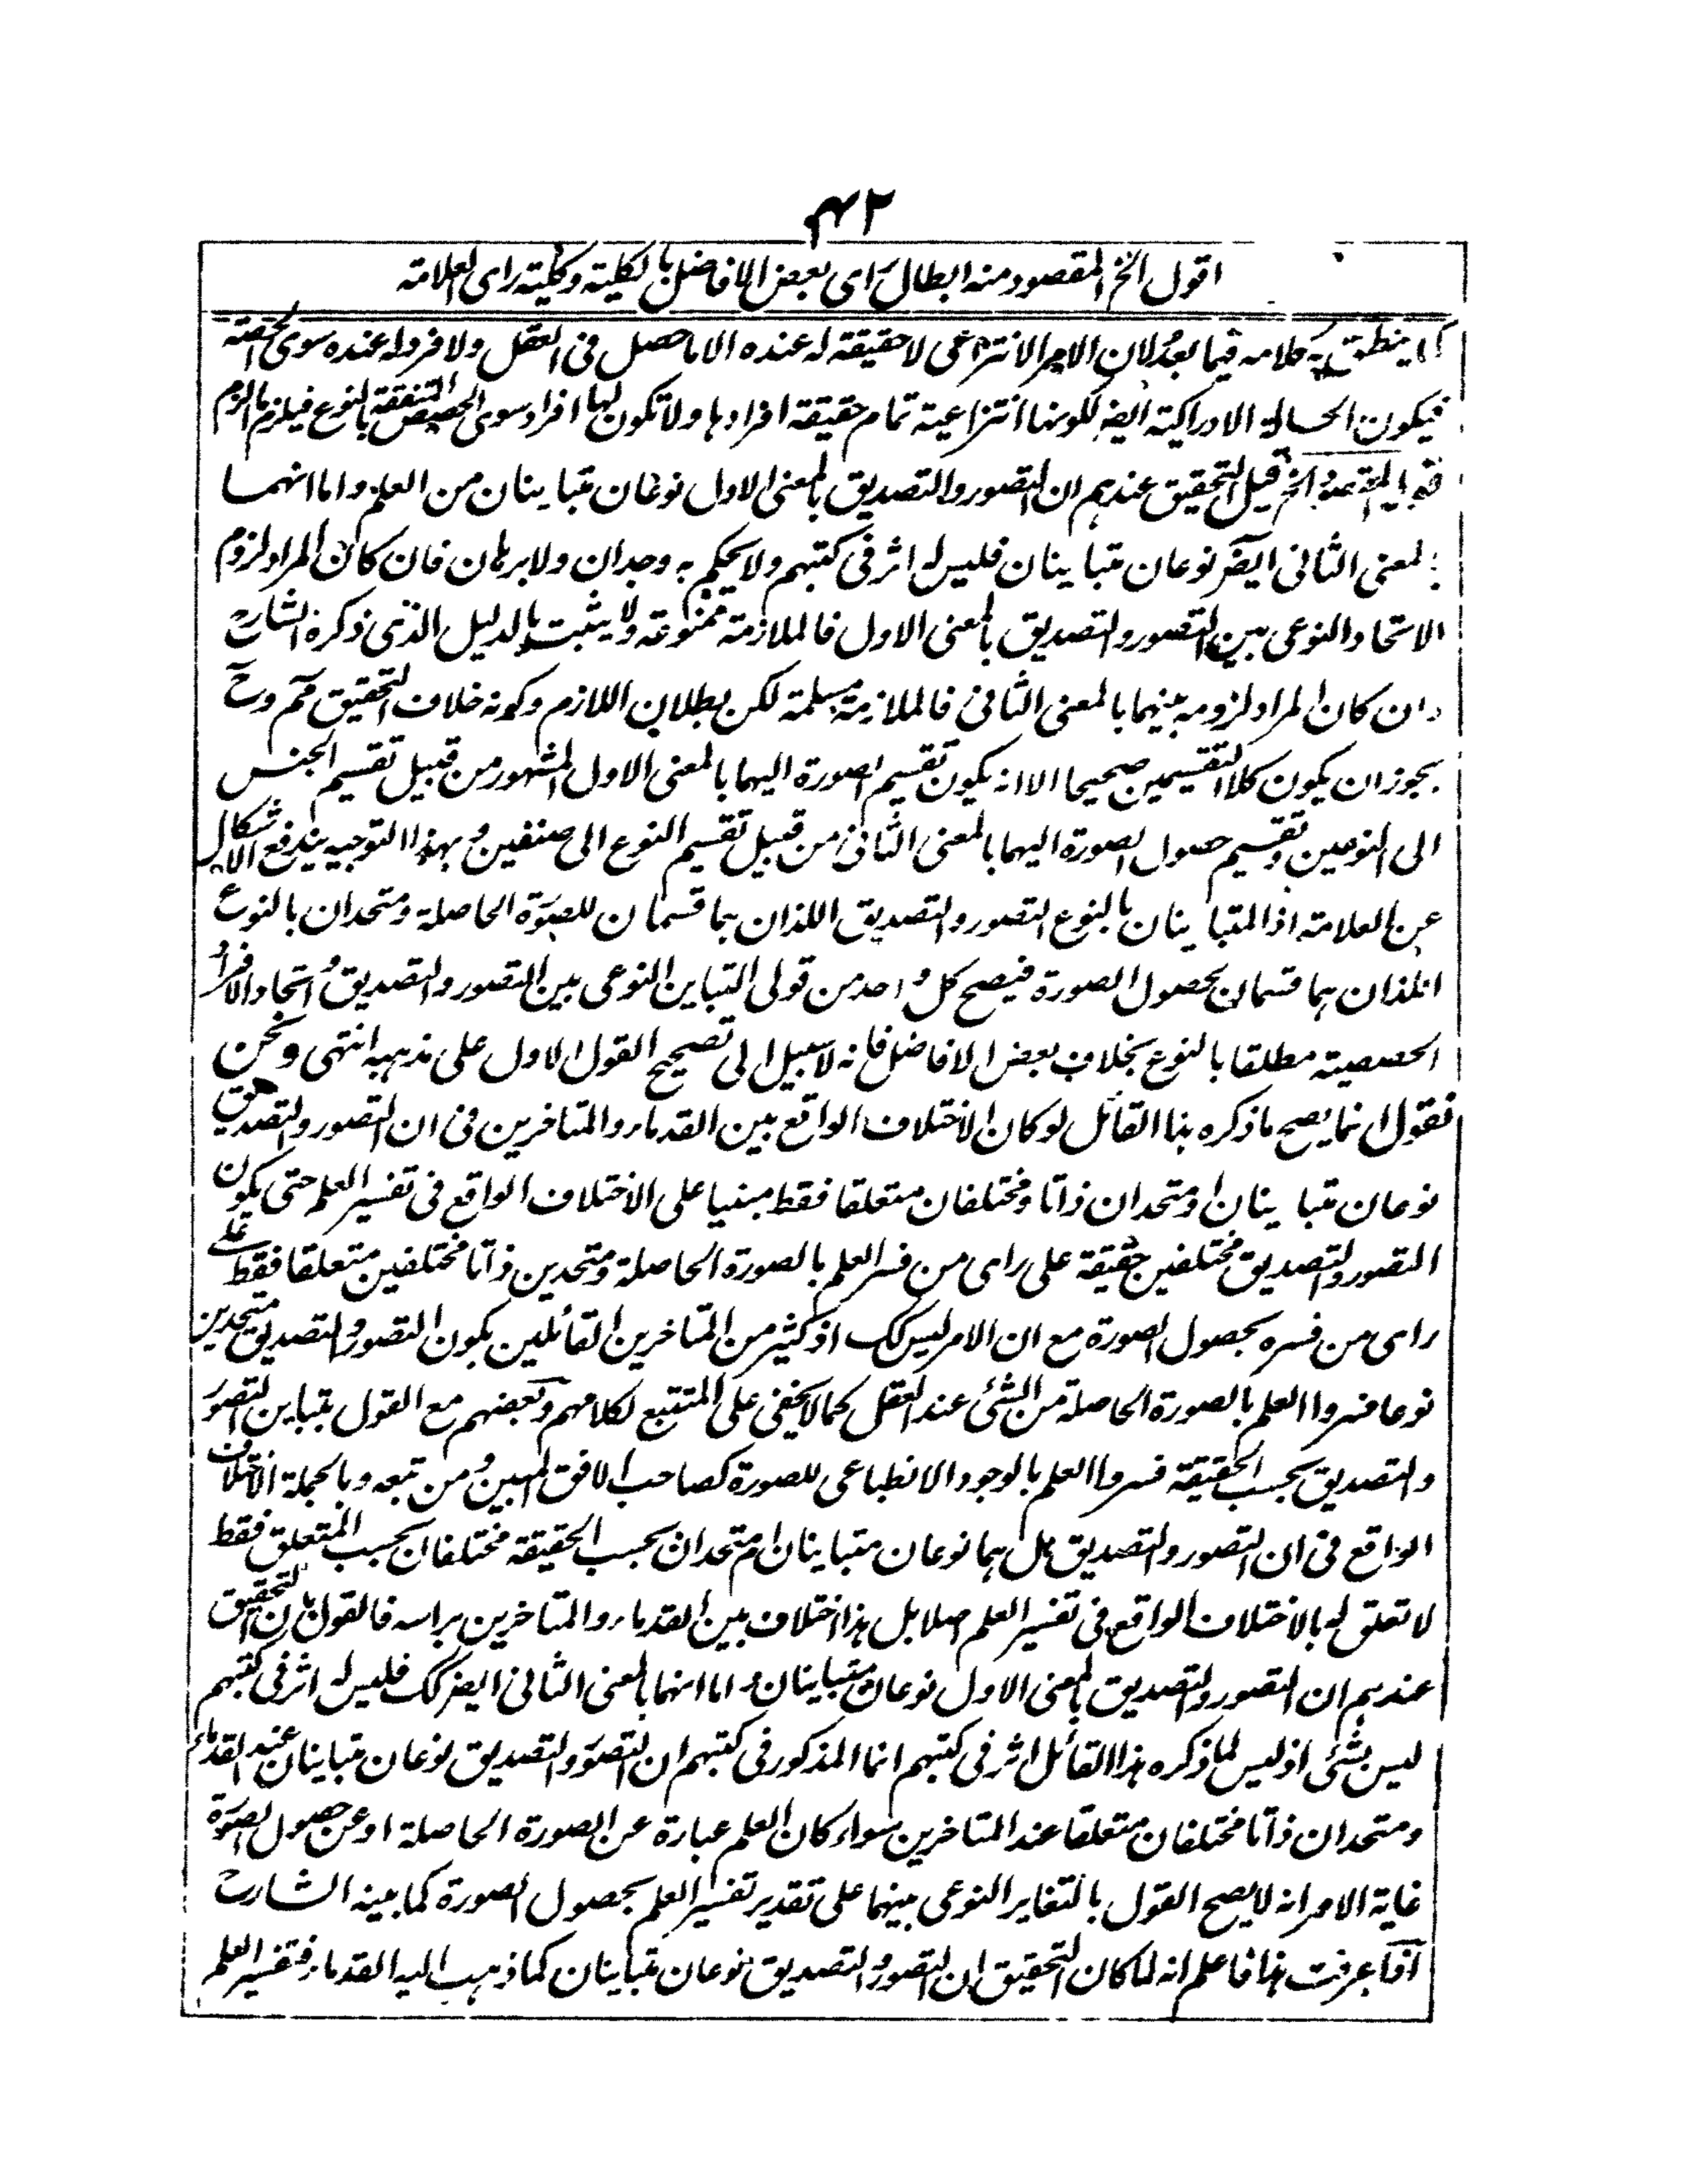 ٤٢
اقول الخ المقصود منه ابطال رأى بعض الافاضل بالكلية وكلية راى العلامة
كما ينطق به كلامه فيما بعد لان الامر الانتزاعى لا حقيقة له عنده الا ما حصل فى العقل ولا فرد له عنده سوى الحصة
فيكون الحالة الادراكية ايضا لكونها انتزاعية تمام حقيقة افرادها ولا تكون لها افراد سوى الحصص المتفقة بالنوع فيلزم ما لزم
الخ قيل التحقيق عندهم ان التصور والتصديق بالمعنى الاول نوعان متباينان من العلم واما انهما
بالمعنى الثانى ايضا نوعان متباينان فليس له اثر فى كتبهم ولا يحكم به وجدان ولا برهان فان كان المراد لزوم
الاتحاد النوعى بين التصور والتصديق بالمعنى الاول فالملازمة ممنوعة ولا يثبت بالدليل الذى ذكره الشارح
وان كان المراد لزومه بينهما بالمعنى الثانى فالملازمة مسلمة لكن بطلان اللازم وكونه خلاف التحقيق مم وح
يجوز ان يكون كلا التقسيمين صحيحا الا انه يكون تقسيم الصورة اليهما بالمعنى الاول المشهور من قبيل تقسيم الجنس
الى النوعين وتقسيم حصول الصورة اليهما بالمعنى الثانى من قبيل تقسيم النوع الى صنفين وبهذا التوجيه يندفع الاشكال
عن العلامة اذ المتباينان بالنوع التصور والتصديق اللذان هما قسمان للصورة الحاصلة ومتحدان بالنوع
اللذان هما قسمان لحصول الصورة فيصح كل واحد من قولى التباين النوعى بين التصور والتصديق واتحاد الافراد
الحصصية مطلقا بالنوع بخلاف بعض الافاضل فانه لا سبيل الى تصحيح القول الاول على مذهبه انتهى ونحن
نقول انما يصح ما ذكره هذا القائل لو كان الاختلاف الواقع بين القدماء والمتاخرين فى ان التصور والتصديق هل
نوعان متباينان او متحدان ذاتا ومختلفان متعلقا فقط مبنيا على الاختلاف الواقع فى تفسير العلم حتى يكون
التصور والتصديق مختلفين حقيقة على راى من فسر العلم بالصورة الحاصلة ومتحدين ذاتا مختلفين متعلقا فقط على
راى من فسره بحصول الصورة مع ان الامر ليس كك اذ كثير من المتاخرين القائلين بكون التصور والتصديق متحدين
نوعا فسروا العلم بالصورة الحاصلة من الشئ عند العقل كما لا يخفى على المتتبع لكلامهم وبعضهم مع القول بتباين التصور
والتصديق بحسب الحقيقة فسروا العلم بالوجود الانطباعى للصورة كصاحب الافق المبين ومن تبعه وبالجملة الاختلاف
الواقع فى ان التصور والتصديق هل هما نوعان متباينان ام متحدان بحسب الحقيقة مختلفان بحسب المتعلق فقط
لا تعلق له بالاختلاف الواقع فى تفسير العلم اصلا بل هذا اختلاف بين القدماء والمتاخرين براسه فالقول بان التحقيق
عندهم ان التصور والتصديق بالمعنى الاول نوعان متباينان واما انهما بالمعنى الثانى ايضا كك فليس له اثر فى كتبهم
ليس بشئ اذ ليس لما ذكره هذا القائل اثر فى كتبهم انما المذكور فى كتبهم ان التصور والتصديق نوعان متباينان عند القدماء
ومتحدان ذاتا مختلفان متعلقا عند المتاخرين سواء كان العلم عبارة عن الصورة الحاصلة او عن حصول الصورة
غاية الامر انه لا يصح القول بالتغاير النوعى بينهما على تقدير تفسير العلم بحصول الصورة كما بينه الشارح
آنفا عرفت هذا فاعلم انه لما كان التحقيق ان التصور والتصديق نوعان متباينان كما ذهب اليه القدماء فتفسير العلم